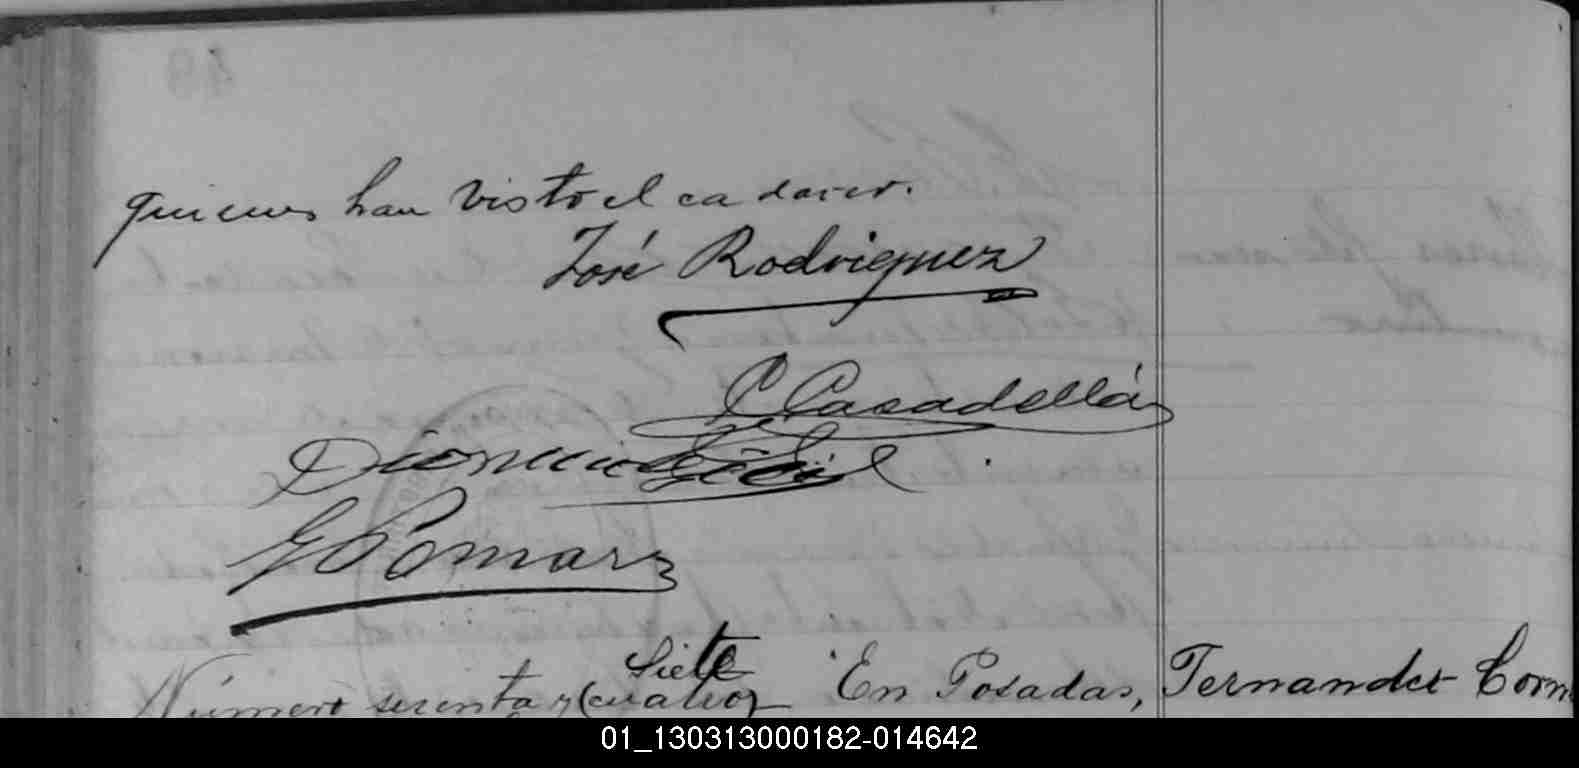 quienes han visto el cadaver.
José Rodriguez
C Casadellá
Dionicio Gil
G Pomar
Siete
Número sesenta y (cuatro) En Posadas, Fernandez Corn
01_130313000182-014642